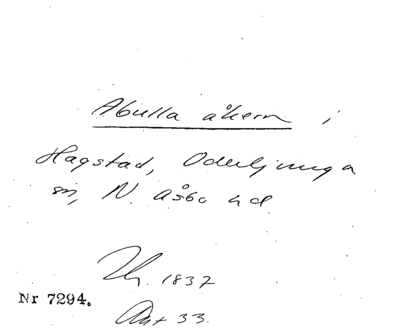 Abulla åkern i
Hagstad, Oderljunga
sn, N. Åsbo hd.
1837
Nr 7294.
Akt 33.